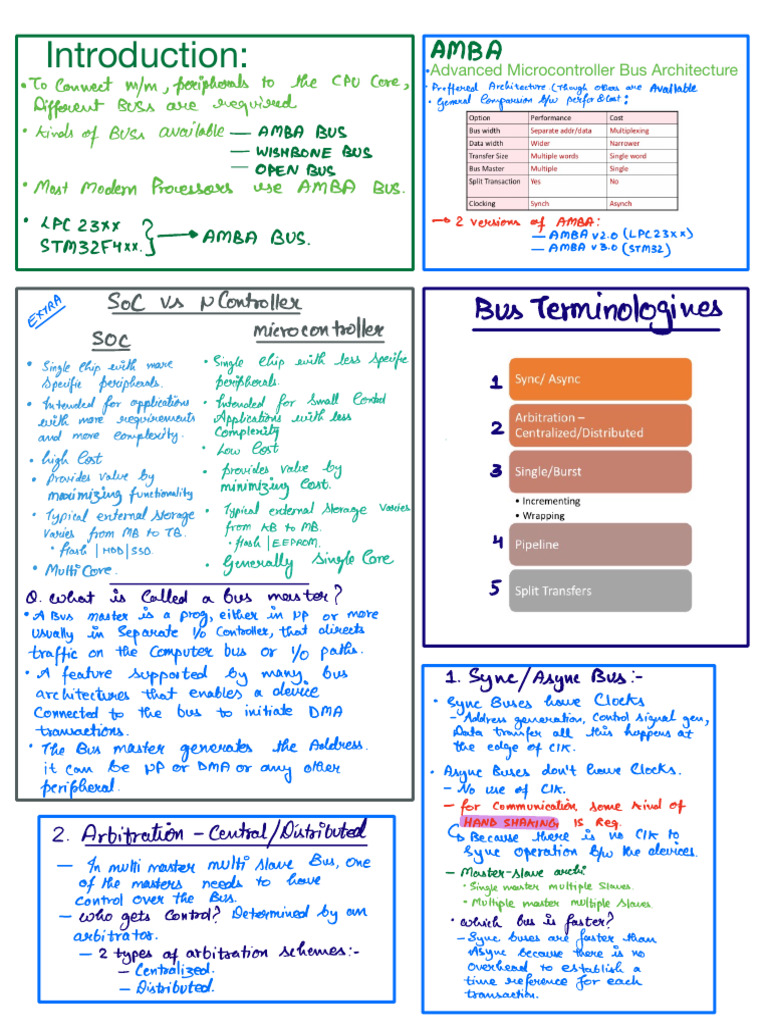 Introduction:
• To Connect m/m, peripherals to the CPU Core,
Different Buses are required
• Kinds of Buses available — AMBA BUS
— WISHBONE BUS
— OPEN BUS
• Most Modern Processors use AMBA Bus.
• LPC 23xx
STM32F4xx. → AMBA BUS.
AMBA
• Advanced Microcontroller Bus Architecture
• Preffered Architecture (Though others are Available
• General Comparison b/w perfor & Cost:
Option Performance Cost
Bus width Separate addr/data Multiplexing
Data width Wider Narrower
Transfer Size Multiple words Single word
Bus Master Multiple Single
Split Transaction Yes No
Clocking Synch Asynch
→ 2 versions of AMBA:
— AMBA v2.0 (LPC23xx)
— AMBA v3.0 (STM32)
EXTRA
SoC vs μController
SoC
• Single Chip with more
Specific peripherals.
• Intended for applications
with more requirements
and more complexity.
• high Cost
• provides value by
maximizing functionality
• Typical external storage
varies from MB to TB.
• flash | HDD | SSD.
• Multi Core.
microcontroller
• Single Chip with less Specific
peripherals.
• Intended for Small Control
Applications with less
Complexity
• Low Cost
• provides value by
minimizing Cost.
• Typical external Storage varies
from KB to MB.
• flash | EEPROM.
• Generally Single Core
Q. what is Called a bus master?
• A Bus master is a prog, either in μP or more
usually in Separate I/O Controller, that directs
traffic on the Computer bus or I/O paths.
• A feature supported by many bus
architectures that enables a device
Connected to the bus to initiate DMA
transactions.
• The Bus master generates the Address.
it can be μP or DMA or any other
peripheral.
Bus Terminologines
1 Sync/ Async
2 Arbitration –
Centralized/Distributed
3 Single/Burst
• Incrementing
• Wrapping
4 Pipeline
5 Split Transfers
1. Sync/Async Bus:-
• Sync Buses have Clocks
– Address generation, Control signal gen,
Data transfer all this happens at
the edge of Clk.
• Async Buses don't have Clocks.
– No use of Clk.
– for Communication some kind of
HAND SHAKING is Req.
↳ Because there is no Clk to
Sync operation b/w the devices.
– Master-slave archi
• Single master multiple Slaves.
• Multiple master multiple Slaves
• Which bus is faster?
– Sync buses are faster than
Async because there is no
overhead to establish a
time reference for each
transaction.
2. Arbitration – Central/Distributed
— In multi master multi slave Bus, one
of the masters needs to have
control over the Bus.
— who gets Control? Determined by an
arbitrator.
— 2 types of arbitration schemes:-
— Centralized.
— Distributed.